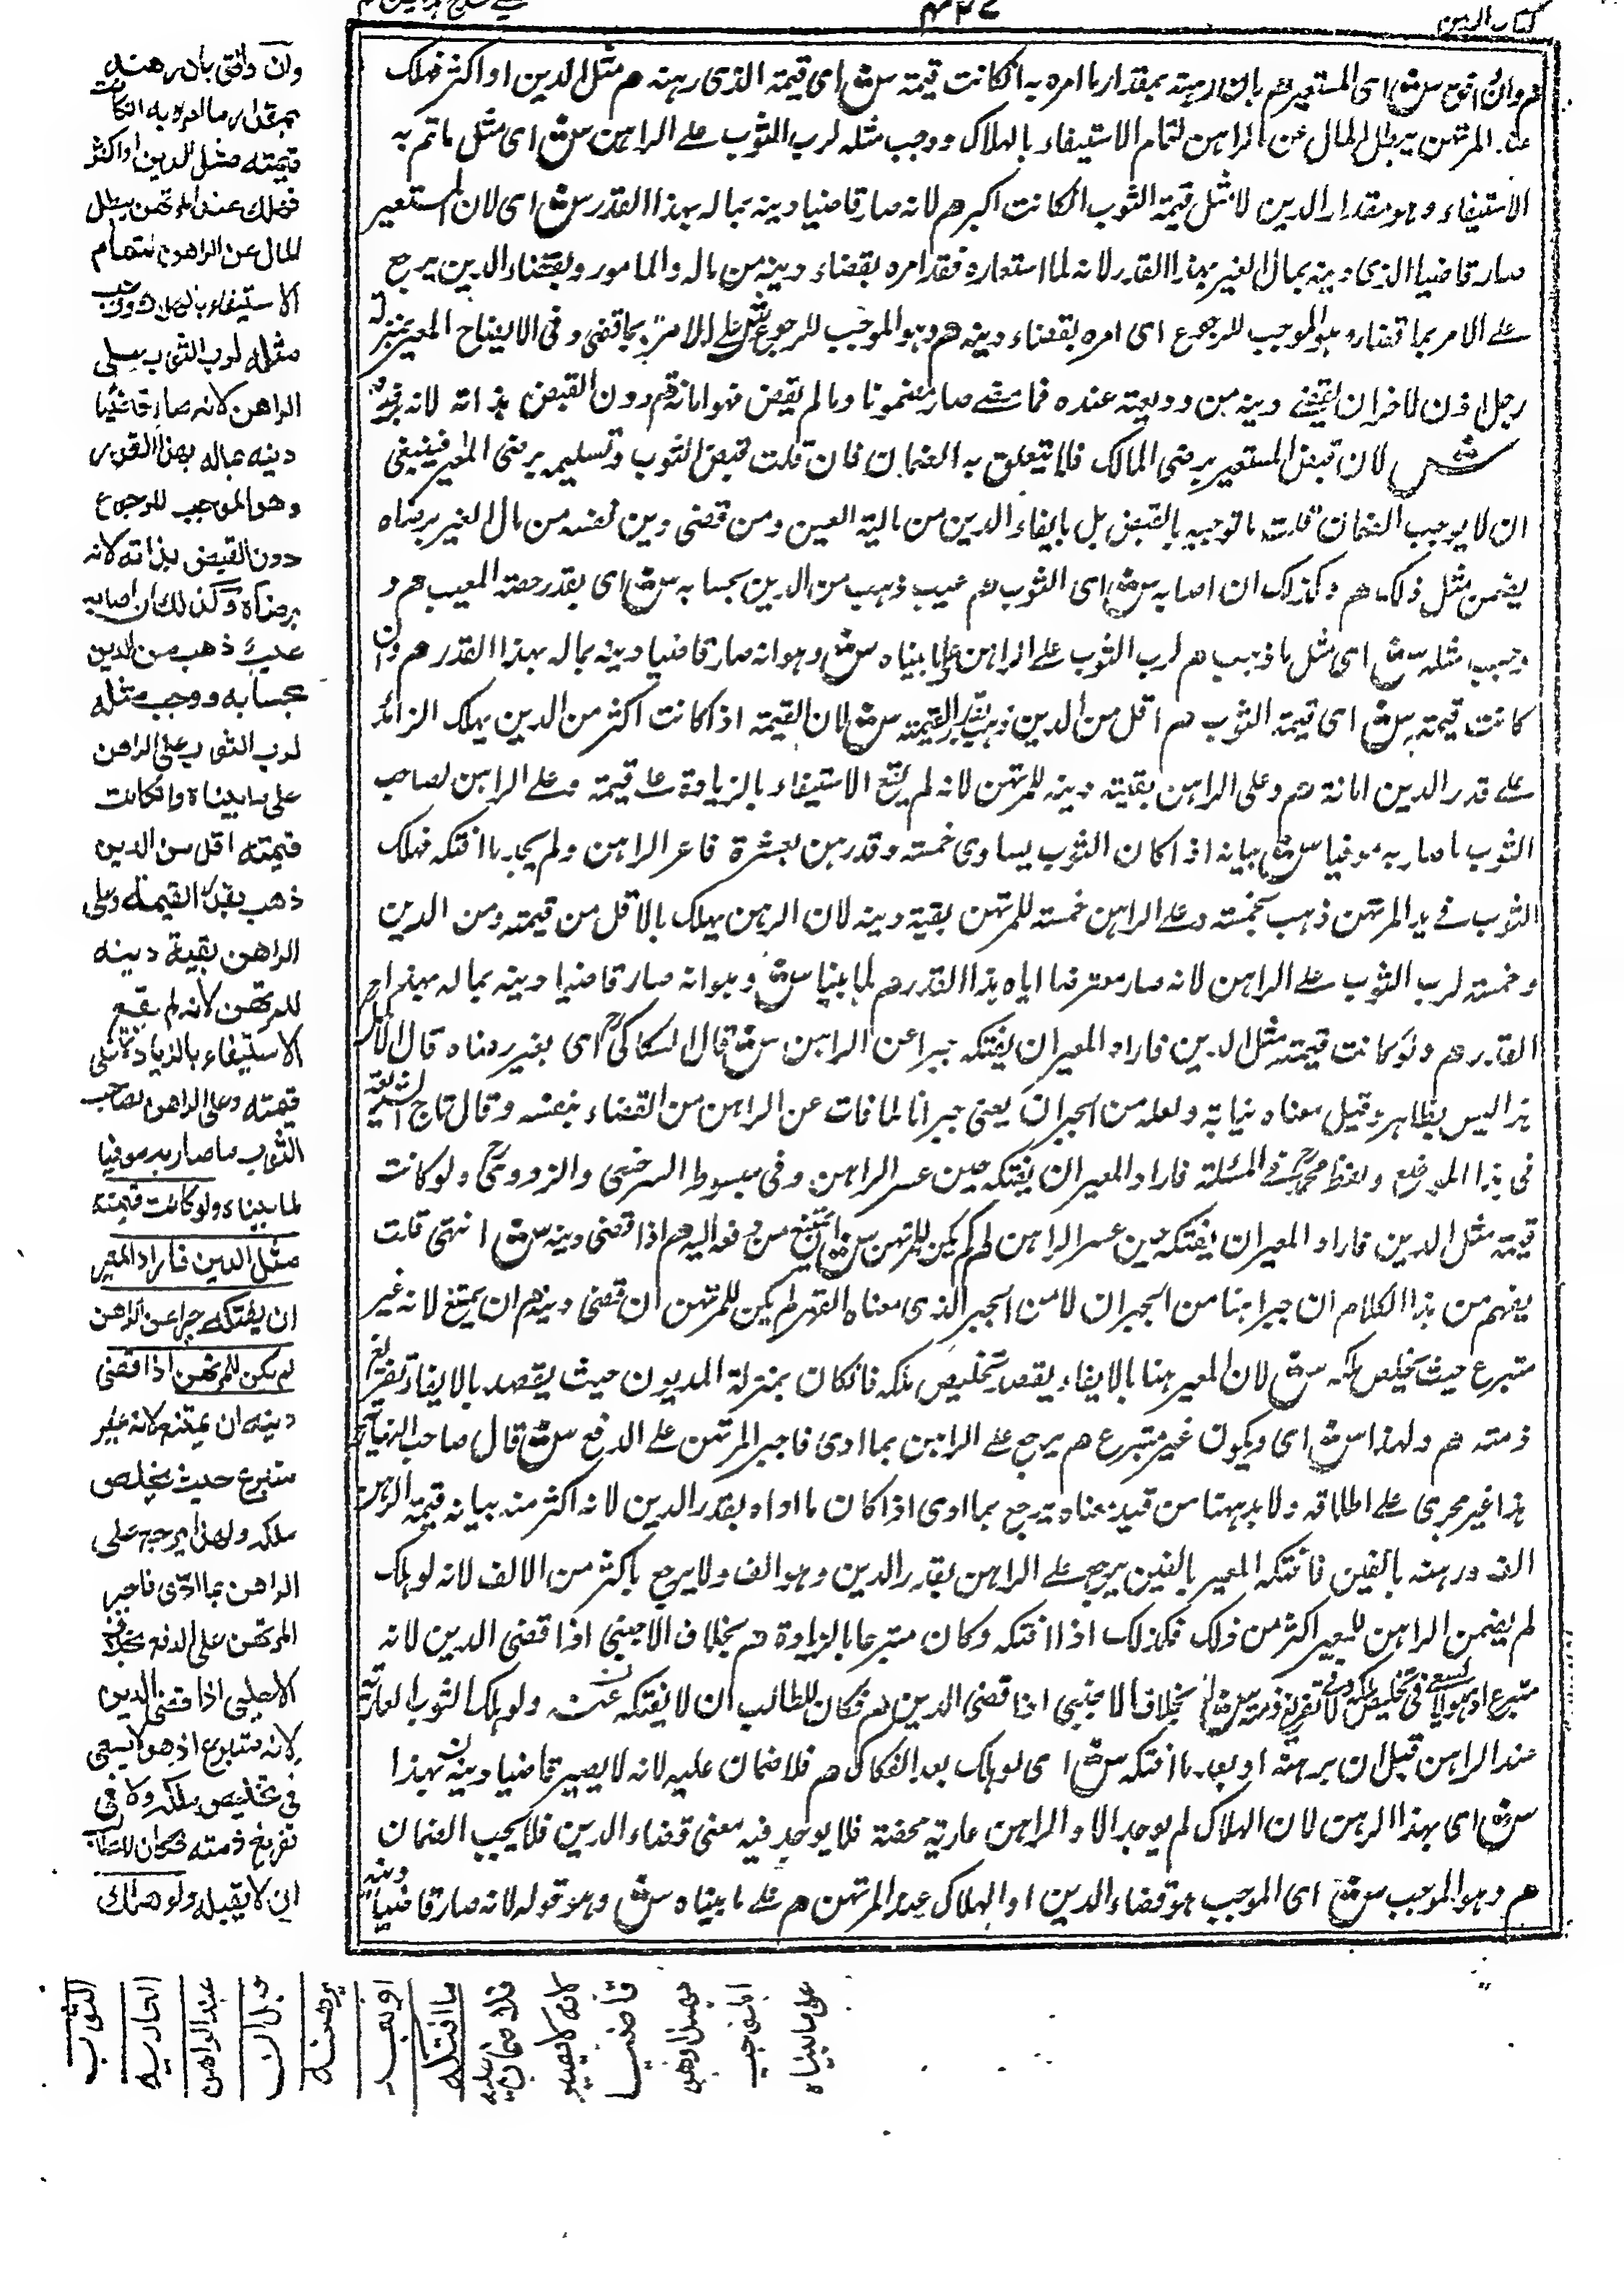 كتاب الرهن
هم وان وافق سش اى المستعير هم بان رهنه بمقدار ما امره به ان كانت قيمة سش اى قيمة الذى رهنه هم مثل الدين او اكثر فهلك
عند المرتهن يبطل المال عن الراهن لتمام الاستيفاء بالهلاك ووجب مثله لرب الثوب على الراهن سش اى مثل ما تم به
الاستيفاء وهو مقدار الدين لا مثل قيمة الثوب ان كانت اكبر هم لانه صار قاضيا دينه بماله بهذا القدر سش اى لان المستعير
صار قاضيا الذى دينه بمال الغير بهذا القدر لانه لما استعاره فقد امره بقضاء دينه من ماله والمامور بقضاء الدين يرجع
على الامر بما قضاه وهو الموجب للرجوع اى امره بقضاء دينه هم وهو الموجب للرجوع سش على الامر بما قضى وفى الايضاح المعير بمنزلة
رجل اذن لاخر ان يقضى دينه من وديعته عنده فما يقضى صار مضمونا وما لم يقض فهو امانة هم دون القبض بذاته لانه برضاه
سش لان قبض المستعير برضى المالك فلا يتعلق به الضمان فان قلت قبض الثوب وتسليمه برضى المعير فينبغى
ان لا يوجب الضمان قلت ما توجبه بالقبض بل بايفاء الدين من مالية العين ومن قضى دين نفسه من مال الغير برضاه
يضمن مثل ذلك هم وكذلك ان اصابه سش اى الثوب هم عيب ذهب من الدين بحسابه سش اى بقدر حصة المعيب هم و
وجب مثله سش اى مثل ما ذهب هم لرب الثوب على الراهن على ما بيناه سش وهو انه صار قاضيا دينه بماله بهذا القدر هم وان
كانت قيمته سش اى قيمة الثوب هم اقل من الدين ذهب بقدر القيمة سش لان القيمة اذا كانت اكثر من الدين يهلك الزائد
على قدر الدين امانة هم وعلى الراهن بقية دينه للمرتهن لانه لم يقع الاستيفاء بالزيادة على قيمته وعلى الراهن لصاحب
الثوب ما صار به موفيا سش بيانه اذا كان الثوب يساوى خمسة وقد رهن بعشرة فاعسر الراهن ولم يجد ما افتكه فهلك
الثوب فى يد المرتهن ذهب بخمسة وعلى الراهن خمسة للمرتهن بقية دينه لان الرهن يهلك بالاقل من قيمته ومن الدين
وخمسة لرب الثوب على الراهن لانه صار مقترضا اياه هذا القدر هم لما بينا سش وهو انه صار قاضيا دينه بماله بهذا
القدر هم ولو كانت قيمته مثل الدين فاراد المعير ان يفتكه جبرا عن الراهن سش قال السكاكى اى بغير رضاه قال الاكمل
هذا ليس بظاهر وقيل معناه نيابة ولعله من الجبران يعنى جبرانا لما فات عن الراهن من القضاء بنفسه وقال تاج الشريعة
فى هذا الموضع ولفظ محمد فى المسئلة فاراد المعير ان يفتكه حين عسر الراهن وفى مبسوط السرخسى والزدوى ولو كانت
قيمته مثل الدين فاراد المعير ان يفتكه حين عسر الراهن لم يكن للمرتهن سش ان يمتنع من دفعه اليه هم اذا قضى دينه سش انتهى قلت
يفهم من هذا الكلام ان جبرا هنا من الجبران لا من الجبر الذى معناه القهر لم يكن للمرتهن ان قضى دينه هم ان يمتنع لانه غير
متبرع حيث يخلص ملكه سش لان المعير هنا بالايفاء يقصد تخليص ملكه فانكان بمنزلة المديون حيث يقصد بالايفاء تفريغ
ذمته هم ولهذا سش اى ويكون غير متبرع هم يرجع على الراهن بما ادى فاجبر المرتهن على الدفع سش قال صاحب النهاية
هذا غير مجرى على اطلاقه ولا بد ههنا من قيد معناه يرجع بما ادى اذا كان ما اداه بقدر الدين لانه اكثر منه بيانه قيمة الرهن
الف ورهنه بالفين فافتكه المعير بالفين يرجع على الراهن بقدر الدين وهو الف ولا يرجع باكثر من الالف لانه لو هلك
لم يضمن الراهن للمعير اكثر من ذلك فكذلك اذا افتكه وكان متبرعا بالزيادة هم بخلاف الاجنبى اذا قضى الدين لانه
متبرع اذ هو لا يسعى فى تخليص ملكه ولا فى تفريغ ذمته سش بخلاف الاجنبى اذا قضى الدين هم فكان للطالب ان لا يفتكه عنه ولو هلك الثوب العارية
عند الراهن قبل ان يرهنه او بعد ما افتكه سش اى لو هلك بعد الفكاك هم فلا ضمان عليه لانه لا يصير قاضيا دينه بهذا
سش اى بهذا الرهن لان الهلاك لم يوجد الا والراهن عارية محضة فلا يوجد فيه معنى قضاء الدين فلا يجب الضمان
هم وهو الموجب سش اى الموجب هو قضاء الدين او الهلاك عند المرتهن هم على ما بيناه سش وهو قوله لانه صار قاضيا دينه
وان وافق بان رهنه
بمقدار ما امره به ان كانت
قيمته مثل الدين او اكثر
فهلك عند المرتهن يبطل
المال عن الراهن لتمام
الاستيفاء بالهلاك ووجب
مثله لرب الثوب على
الراهن لانه صار قاضيا
دينه بماله بهذا القدر
وهو الموجب للرجوع
دون القبض بذاته لانه
برضاه وكذلك ان اصابه
عيب ذهب من الدين
بحسابه ووجب مثله
لرب الثوب على الراهن
على ما بيناه وان كانت
قيمته اقل من الدين
ذهب بقدر القيمة وعلى
الراهن بقية دينه
للمرتهن لانه لم يقع
الاستيفاء بالزيادة على
قيمته وعلى الراهن لصاحب
الثوب ما صار به موفيا
لما بيناه ولو كانت قيمته
مثل الدين فاراد المعير
ان يفتكه جبرا عن الراهن
لم يكن للمرتهن اذا قضى
دينه ان يمتنع لانه غير
متبرع حيث يخلص
ملكه ولهذا يرجع على
الراهن بما ادى فاجبر
المرتهن على الدفع بخلاف
الاجنبى اذا قضى الدين
لانه متبرع اذ هو لا يسعى
فى تخليص ملكه ولا فى
تفريغ ذمته فكان للطالب
ان لا يقبله ولو هلك
الثوب
العارية
عند الراهن
قبل ان
يرهنه
او بعد
ما افتكه
فلا ضمان عليه
لانه لا يصير
قاضيا
بهذا وهو
الموجب
على ما بيناه